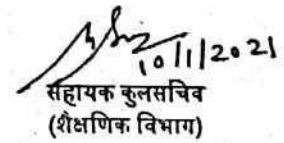 10/1/2021
सहायक कुलसचिव
(शैक्षणिक विभाग)